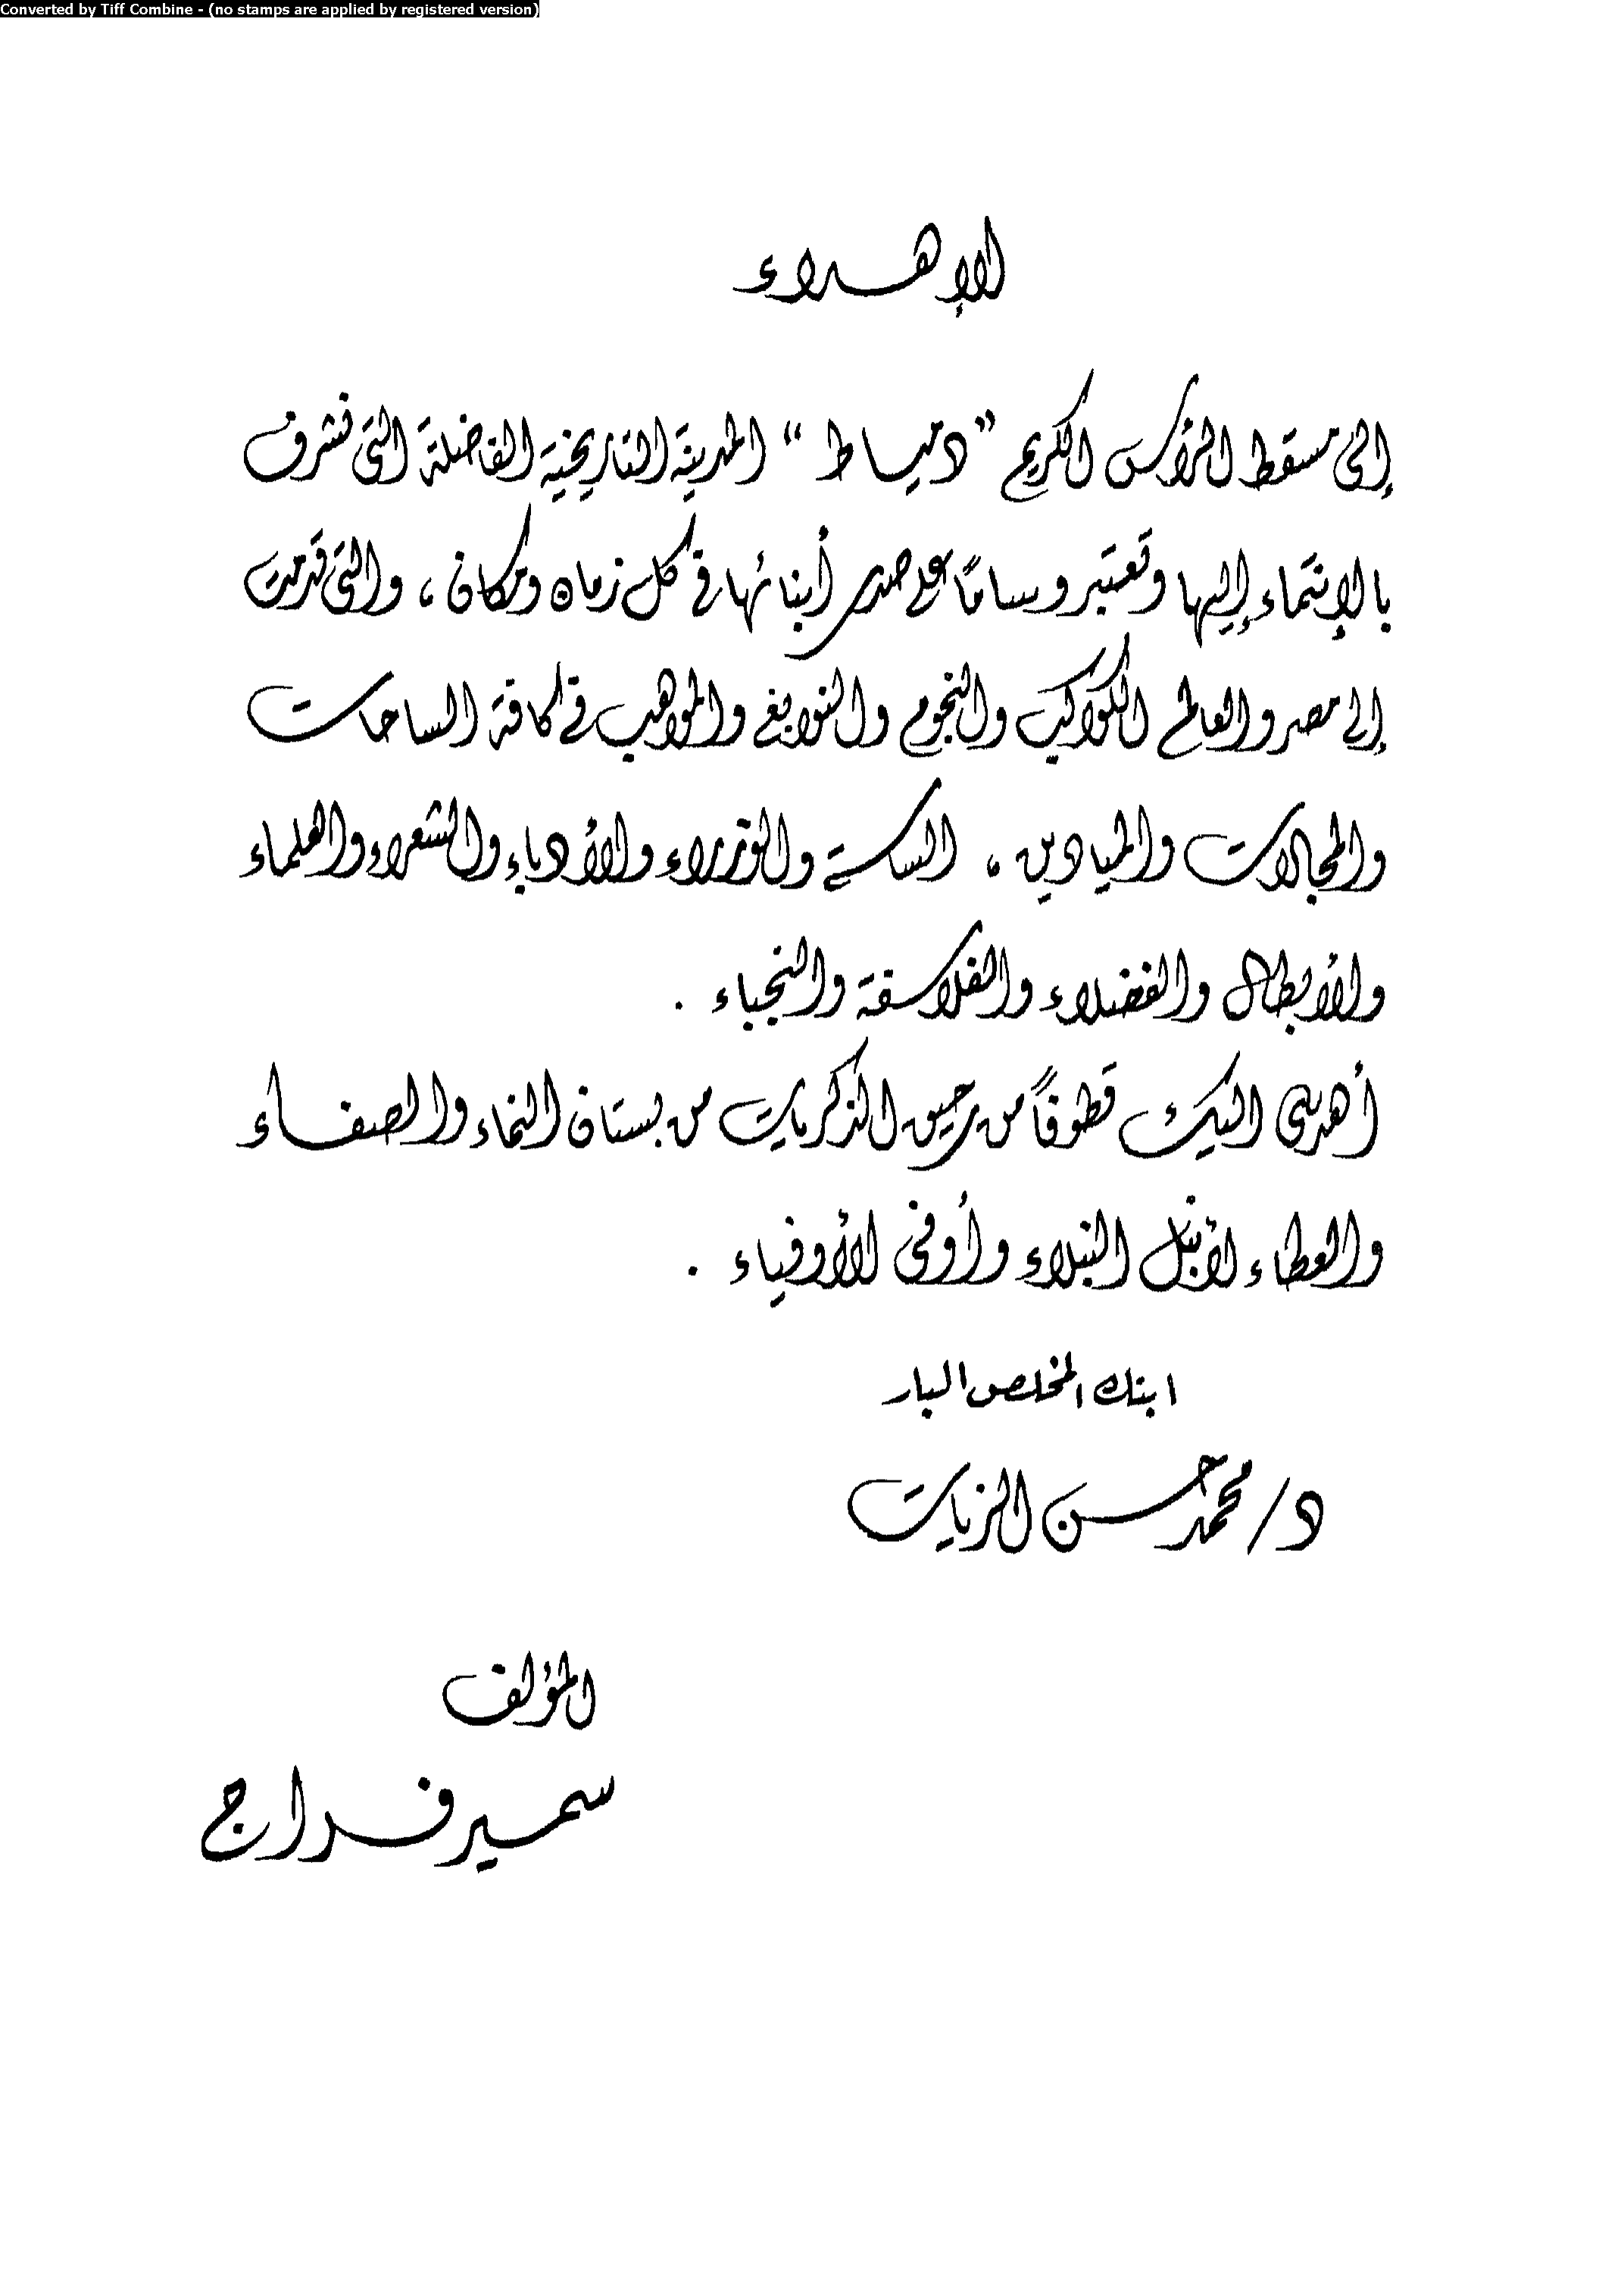 Converted by Tiff Combine - (no stamps are applied by registered version)
الإهداء
إلى مسقط الرأس الكريم "دمياط" المدينة التاريخية الفاضلة التى نشرف
بالإنتماء إليها وتعتبر وسامًا على صدر أبنائها فى كل زمان ومكان ، والتى قدمت
إلى مصر والعالم الكواكب والنجوم والنوابغ والمواهب فى كافة الساحات
والمجالات والميادين ، الساسة والوزراء والأدباء والشعراء والعلماء
والأبطال والفضلاء والفلاسفة والنجباء .
أهدى اليك قطوفًا من رحيق الذكريات من بستان النماء والصفاء
والعطاء لأنبل النبلاء وأوفى الأوفياء .
ابنك المخلص البار
د/ محمد حسن الزيات
المؤلف
سمير فراج